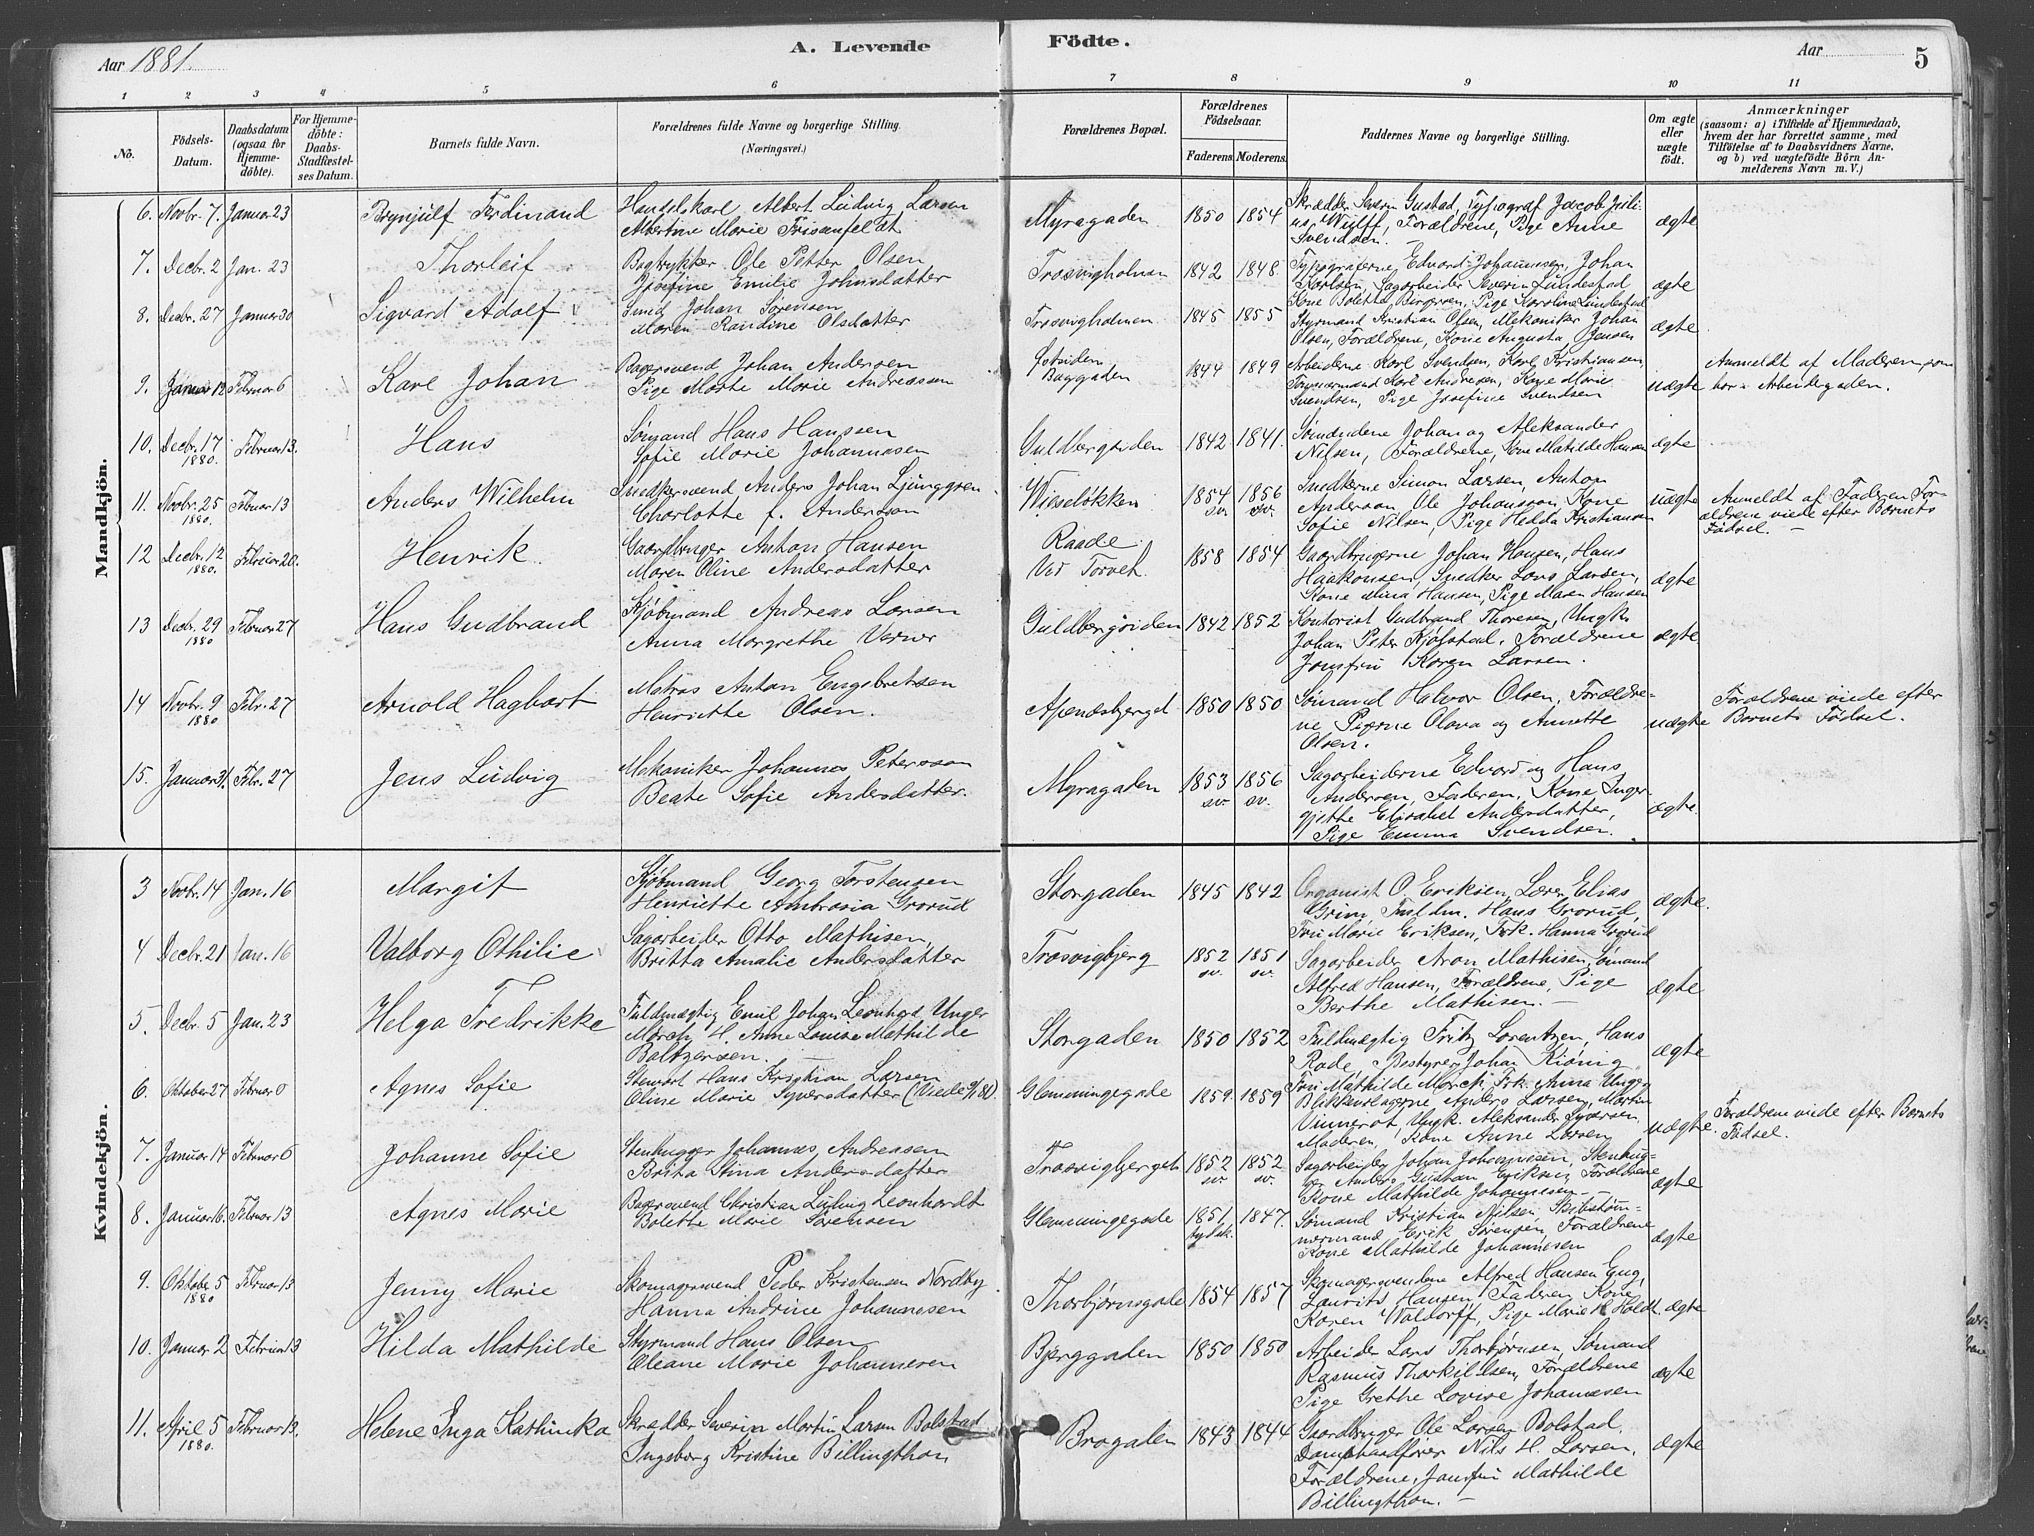 Aar 1881.
A. Levende
Födte.
Aar
5
1 2 3 4 5 6 7 8 9 10 11
No.
Födsels-Datum.
Daabsdatum (ogsaa for Hjemme-döbte).
For Hjemme-döbte: Daabs-Stadfæstel-ses Datum.
Barnets fulde Navn.
Forældrenes fulde Navne og borgerlige Stilling.
(Næringsvei.)
Forældrenes Bopæl.
Forældrenes Födselsaar.
Faderens. Moderens.
Faddernes Navne og borgerlige Stilling.
Om ægte eller uægte födt.
Anmærkninger
(saasom: a) i Tilfælde af Hjemmedaab, hvem der har forrettet samme, med Tilföielse af to Daabsvidners Navne, og b) ved uægtefödte Börn An-melderens Navn m. V.)
Mandkjön.
6. Novbr. 7. Januar 23 Brynjulf Ferdinand Handelskarl Albert Ludvig Larsen
Albertine Marie
Myragaden 1850 1854 Skrædder Severin Gustad, Typograf Jacob Juli-
us Wulff, Forældrene, Pige Anne
Svendsen. ægte
7. Decbr. 2 Jan. 23 Thorleif Bogtrykker Ole Petter Olsen
Josefine Emilie Johnsdatter
Trosvigholmen 1842 1848. Typograferne Edvard Johannsen, Johan
Karlsen, Sagarbeider Severin Lundestad
Kone Bolette Børgersen, Pige Karoline Lundestad ægte
8. Decbr. 27 Januar 30 Sigvard Adolf Smed Johan Sørensen
Maren Randine Olsdatter
Trosvigholmen 1845 1855 Styrmand Kristian Olsen, Mekaniker Johan
Olsen, Forældrene, Kone Augusta Jensen ægte
9. Januar 12 Februar 6 Karl Johan Bagersvend Johan Andersen
Pige Marte Marie Andreassen
Baggaden 1844 1849 Arbeiderne Karl Svendsen, Karl Kristiansen,
Karl Andresen, Kone Marie
Svendsen, Pige Josefine Svendsen uægte
Anmeldt af Moderen som
bor i Arbeidergaden.
10. Decbr. 17 1880 Februar 13. Hans Sømand Hans Hanssen
Sofie Marie Johannesen
Guldbergsiden 1842 1841. Sømændene Johan og Aleksander
Nilsen, Forældrene, Kone Matilde Hansen ægte
11. Novbr. 25 1880. Februar 13 Anders Wilhelm Snedkersvend Anders Johan Ljunggren
Charlotte f. Anderson
Wieseløkken 1854 sv. 1856 sv. Snedkerne Simon Larsen, Anton
Anderson Ole Johansson, Kone
Sofie Nilsen, Pige Hedda Kristiansen uægte
Anmeldt af Faderen For-
ældrene viede efter Barnets
Fødsel. —
12 Decbr. 12 1880. Februar 20. Henrik Gaardbruger Anton Hansen
Maren Oline Andersdatter
Raade
Ved Torvet. 1858 1854 Gaardbrugerne Johan Hansen, Hans
Haakonsen, Snedker Lars Larsen,
Kone Mina Hansen, Pige Maren Hansen ægte
13 Decbr. 29 1880 Februar 27 Hans Gudbrand Kjøbmand Andreas Larsen
Anna Margrethe Verner
Guldbergsiden 1842 1852 Kontorist Gudbrand Thoresen, Ungk.
Johan Peter Kjølstad. Forældrene
Jomfru Karen Larsen. ægte
14 Novbr. 9 1880 Febr. 27 Arnold Hagbart Matros Anton Engebretsen
Henriette Olsen.
Apenæsbjerget 1850 1850 Sømand Halvor Olsen, Forældre-
ne Pigerne Olava og Annette
Olsen. uægte
Forældrene viede efter
Barnets Fødsel.
15. Januar 31. Febr. 27 Jens Ludvig Mekaniker Johannes Petersson
Beate Sofie Andersdatter.
Myragaden 1853 sv 1856 sv. Sagarbeiderne Edvard og Hans
Andersen, Faderen, Kone Inger-
gjette Elisabet Andersdatter,
Pige Emma Svendsen. ægte.
Kvindekjön.
3 Novbr. 14 Jan. 16 Margit Kjøbmand Georg Torstensen
Henriette Ambrosia Grorud
Storgaden 1845 1842 Organist O. Eriksen, Lærer Elias
Grim, Hans Grorud,
Fru Marie Eriksen, Frk. Hanna Grorud ægte.
4 Decbr. 21 Jan. 16 Valborg Othilie Sagarbeider Otto Mathisen,
Britta Amalie Andersdatter
Trosvigbjerg 1852 sv. 1851 sv. Sagarbeider Aron Mathisen, Sømand
Alfred Hansen, Forældrene, Pige
Berthe Mathisen. — ægte
5. Decbr. 5 Jan. 23 Helga Fredrikke Fuldmægtig Emil Johan Leonhard Unger
Mørch, H. Anne Louise Mathilde
Baltzersen. —
Storgaden 1850 1852 Fuldmægtig Fritz Lorentzen, Hans
Rode, Bestyrer Johan Kiönig
Fru Mathilde Mørch, Frk. Anna Unger ægte
6. Oktober 27 Februar 6 Agnes Sofie Stewart Hans Kristian Larsen
Oline Marie Syversdatter
Glemmingegade 1859. 1859 Blikkenslagerne Anders Larsen, Martin
Vinnerød, Ungk. Aleksander Syversen
Moderen, Kone Anne Larsen uægte.
Forældrene viede efter Barnets
Fødsel.
7. Januar 14 Februar 6 Johanne Sofie Stenhugger Johannes Andreasen
Brita Stina Andersdatter
Trosvigbjerget 1852 sv 1852 sv. Sagarbeider Johan Johannesen, Stenhug-
ger Anders Gustav Eriksen, Forældrene
Kone Mathilde Johannesen — ægte
8. Januar 16. Februar 13 Agnes Marie Bagersvend Christian Ludvig Leonhardt
Bolette Marie Sørensen
Glemmingegade 1851. tydsk. 1847. Sømand Kristian Nilsen, Skibstøm-
mermand Erik Sørensen, Forældrene
Kone Mathilde Johannesen ægte
9. Oktober 5 1880 Februar 13 Jenny Marie Skomagersvend Peder Kristensen Nordby
Hanna Andrine Johannesen
Thorbjørnsgade 1854 1857 Skomagersvendene Alfred Hansen Eng,
Laurits Hansen, Faderen, Kone
Karen Waldorff, Pige Marie K. Holdt. ægte
10. Januar 2 Februar 13 Hilda Mathilde Styrmand Hans Olsen
Oleane Marie Johannesen
Bjerggaden 1850 1850 Arbeider Lars Thorbjørnsen, Sømand
Rasmus Thorkildsen, Forældrene
Pige Grethe Lovise Johannesen ægte
11. April 5 1880. Februar 13. Helene Inga Kathinka Skrædder Severin Martin Larsen Bolstad
Ingeborg Kristine Billingthon
Brogaden 1843 1844 Gaardbruger Ole Larsen Bolstad,
Nils H. Larsen,
Forældrene, Jomfru Mathilde
Billingthon. — ægte